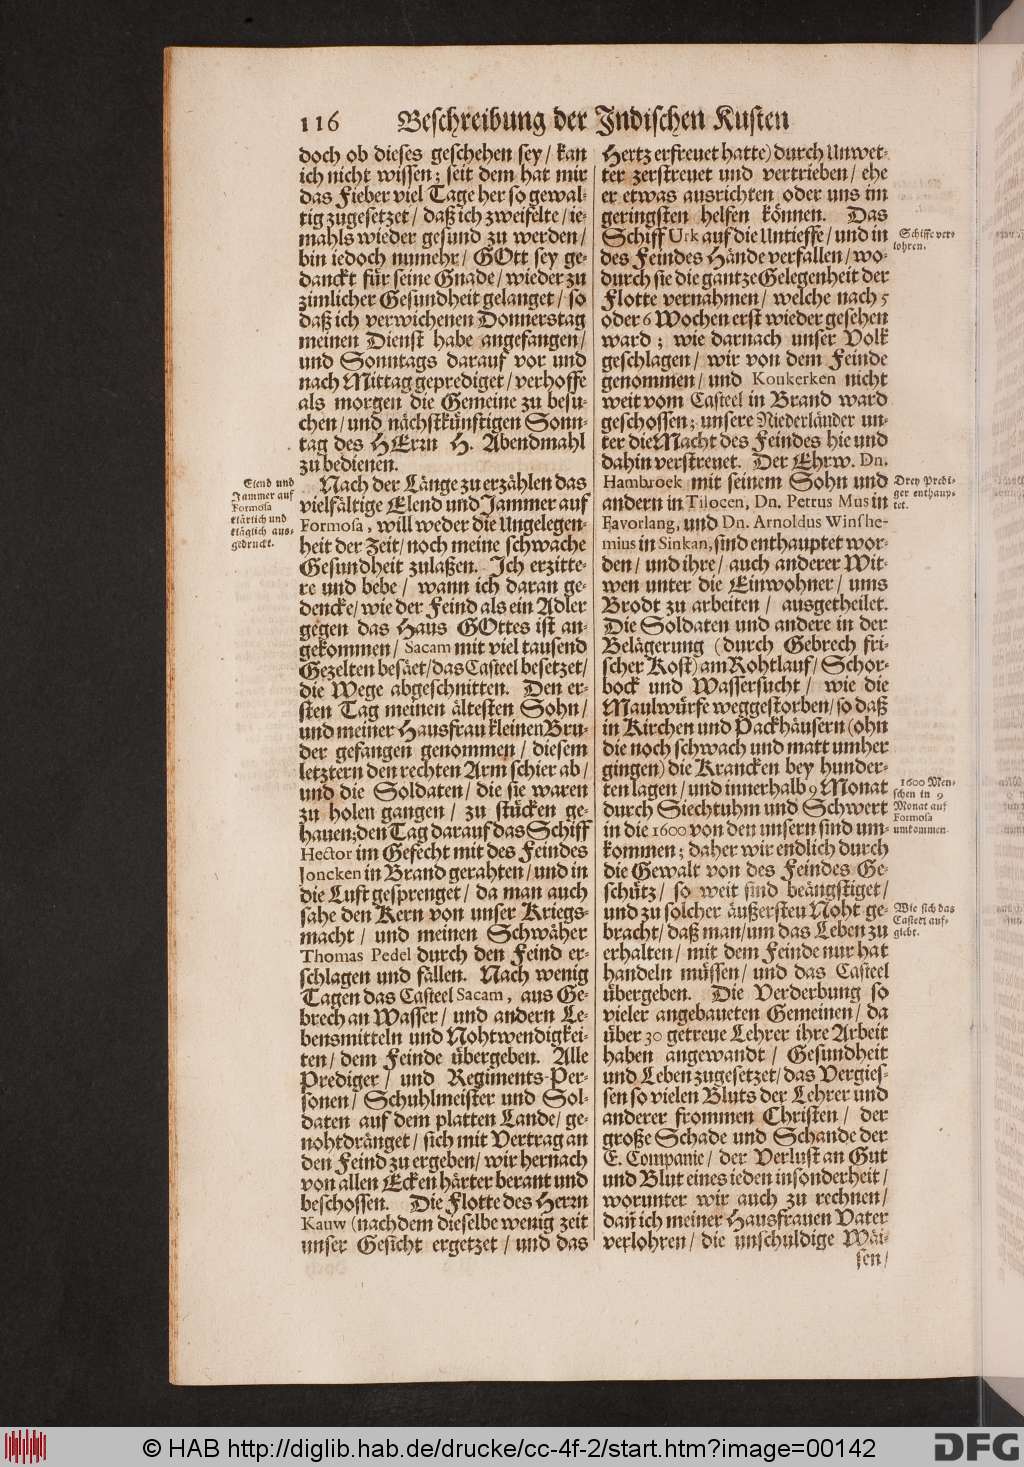 116 Beschreibung der Indischen Kusten
doch ob dieses geschehen sey/ kan
ich nicht wissen; seit dem hat mir
das Fieber viel Tage her so gewal-
tig zugesetzet/ daß ich zweifelte/ ie-
mahls wieder gesund zu werden/
bin iedoch nunmehr/ GOtt sey ge-
danckt für seine Gnade/ wieder zu
zimlicher Gesundheit gelanget/ so
daß ich verwichenen Donnerstag
meinen Dienst habe angefangen/
und Sonntags darauf vor und
nach Mittag geprediget/ verhoffe
als morgen die Gemeine zu besu-
chen/ und nächstkünftigen Sonn-
tag des HErrn H. Abendmahl
zu bedienen.
Elend und
Jammer auf
Formosa
klärlich und
kläglich aus-
gedruckt.
Nach der Länge zu erzählen das
vielfältige Elend und Jammer auf
Formosa, will weder die Ungelegen-
heit der Zeit/ noch meine schwache
Gesundheit zulaßen. Ich erzitte-
re und bebe/ wann ich daran ge-
dencke/ wie der Feind als ein Adler
gegen das Haus GOttes ist an-
gekommen/ Sacam mit viel tausend
Gezelten besäet/ das Casteel besetzet/
die Wege abgeschnitten. Den er-
sten Tag meinen ältesten Sohn/
und meiner Hausfrau kleinen Bru-
der gefangen genommen/ diesem
letztern den rechten Arm schier ab/
und die Soldaten/ die sie waren
zu holen gangen/ zu stücken ge-
hauen; den Tag darauf das Schiff
Hector im Gefecht mit des Feindes
Joncken in Brand gerahten/ und in
die Luft gesprenget/ da man auch
sahe den Kern von unser Kriegs-
macht/ und meinen Schwäher
Thomas Pedel durch den Feind er-
schlagen und fällen. Nach wenig
Tagen das Casteel Sacam, aus Ge-
brech an Wasser/ und andern Le-
bensmitteln und Nohtwendigkei-
ten/ dem Feinde übergeben. Alle
Prediger/ und Regiments-Per-
sonen/ Schuhlmeister und Sol-
daten auf dem platten Lande/ ge-
nohtdränget/ sich mit Vertrag an
den Feind zu ergeben/ wir hernach
von allen Ecken härter berant und
beschossen. Die Flotte des Herrn
Kauw (nachdem dieselbe wenig zeit
unser Gesicht ergetzet/ und das
Hertz erfreuet hatte) durch Unwet-
ter zerstreuet und vertrieben/ ehe
er etwas ausrichten oder uns im
geringsten helfen können. Das
Schiff Urk auf die Untieffe/ und in
des Feindes Hände verfallen/ wo-
durch sie die gantze Gelegenheit der
Flotte vernahmen/ welche nach 5
oder 6 Wochen erst wieder gesehen
ward; wie darnach unser Volk
geschlagen/ wir von dem Feinde
genommen/ und Koukerken nicht
weit vom Casteel in Brand ward
geschossen; unsere Niederländer un-
ter die Macht des Feindes hie und
dahin verstreuet. Der Ehrw. Dn.
Hambroek mit seinem Sohn und
andern in Tilocen, Dn. Petrus Mus in
Favorlang, und Dn. Arnoldus Winshe-
mius in Sinkan, sind enthauptet wor-
den/ und ihre/ auch anderer Wit-
wen unter die Einwohner/ ums
Brodt zu arbeiten/ ausgetheilet.
Die Soldaten und andere in der
Belägerung (durch Gebrech fri-
scher Kost) am Rohtlauf/ Schor-
bock und Wassersucht/ wie die
Maulwürfe weggestorben/ so daß
in Kirchen und Packhäusern (ohn
die noch schwach und matt umher
gingen) die Krancken bey hunder-
ten lagen/ und innerhalb 9 Monat
durch Siechtuhm und Schwert
in die 1600 von den unsern sind um-
kommen; daher wir endlich durch
die Gewalt von des Feindes Ge-
schütz/ so weit sind beängstiget/
und zu solcher äußersten Noht ge-
bracht/ daß man/ um das Leben zu
erhalten/ mit dem Feinde nur hat
handeln müssen/ und das Casteel
übergeben. Die Verderbung so
vieler angebaueten Gemeinen/ da
über 30 getreue Lehrer ihre Arbeit
haben angewandt/ Gesundheit
und Leben zugesetzet/ das Vergies-
sen so vielen Bluts der Lehrer und
anderer frommen Christen/ der
große Schade und Schande der
E. Companie/ der Verlust an Gut
und Blut eines ieden insonderheit/
worunter wir auch zu rechnen/
dañ ich meiner Hausfrauen Vater
verlohren/ die unschuldige Wäi-
sen/
Schiffe ver-
lohren.
Drey Predi-
ger enthaup-
tet.
1600 Men-
schen in 9
Monat auf
Formosa
umkommen.
Wie sich das
Casteel auf-
giebt.
© HAB http://diglib.hab.de/drucke/cc-4f-2/start.htm?image=00142
DFG